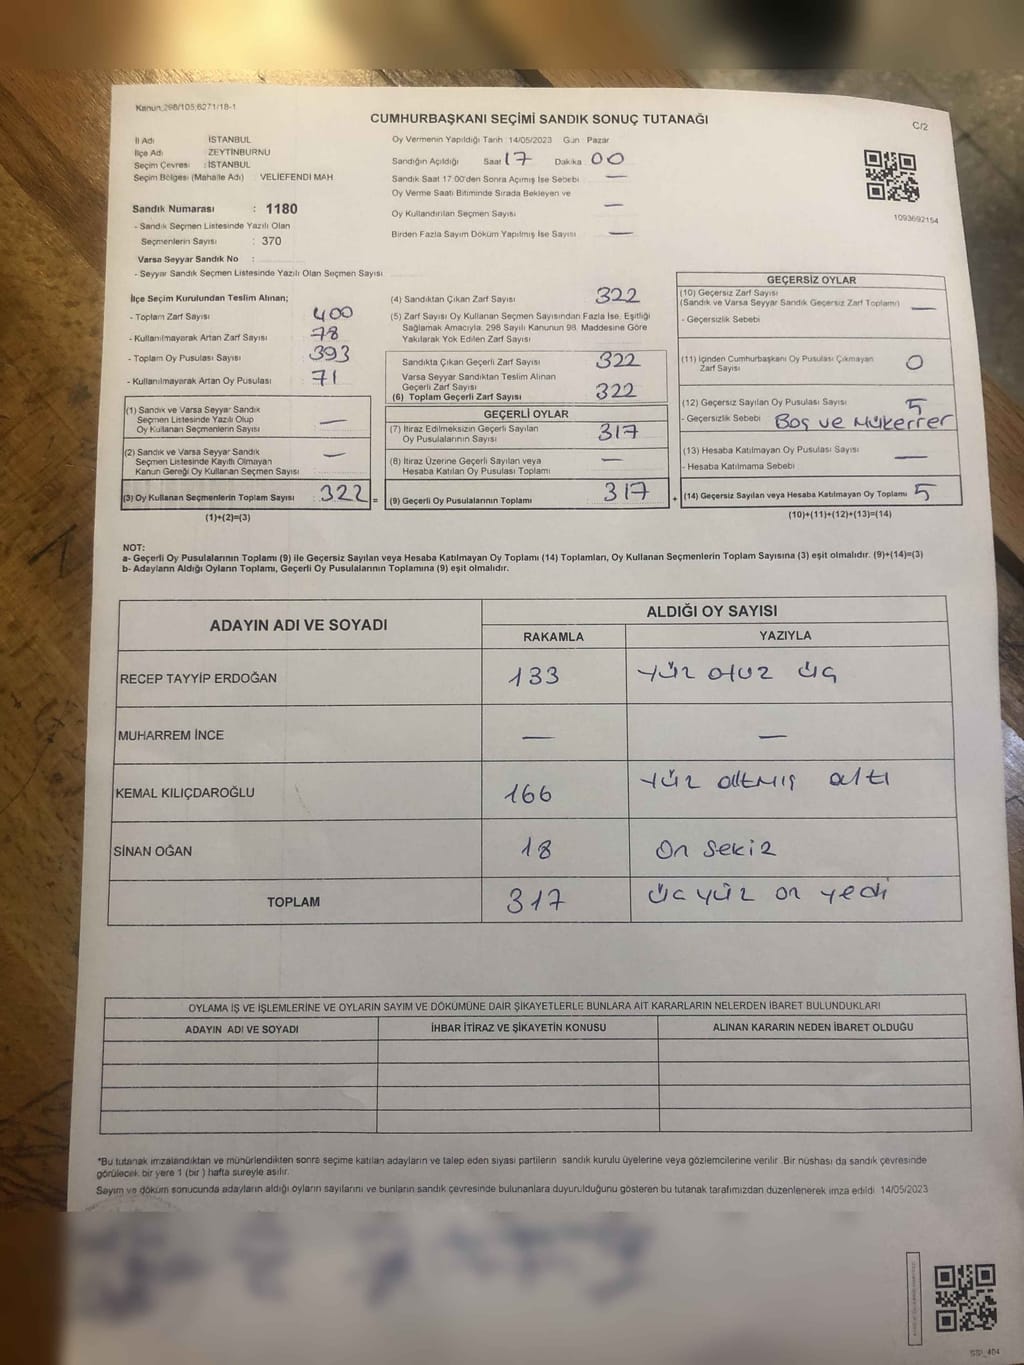 Kanun 298/105,6271/18-1
CUMHURBAŞKANI SEÇİMİ SANDIK SONUÇ TUTANAĞI
C/2
İl Adı : İSTANBUL
İlçe Adı : ZEYTİNBURNU
Seçim Çevresi : İSTANBUL
Seçim Bölgesi (Mahalle Adı) : VELİEFENDİ MAH
Sandık Numarası : 1180
- Sandık Seçmen Listesinde Yazılı Olan
Seçmenlerin Sayısı : 370
Varsa Seyyar Sandık No :
- Seyyar Sandık Seçmen Listesinde Yazılı Olan Seçmen Sayısı
Oy Vermenin Yapıldığı Tarih 14/05/2023 Gün Pazar
Sandığın Açıldığı Saat 17 Dakika 00
Sandık Saat 17 00'den Sonra Açımış İse Sebebi —
Oy Verme Saati Bitiminde Sırada Bekleyen ve
Oy Kullandırılan Seçmen Sayısı —
Birden Fazla Sayım Döküm Yapılmış İse Sayısı —
1093692154
İlçe Seçim Kurulundan Teslim Alınan;
- Toplam Zarf Sayısı 400
- Kullanılmayarak Artan Zarf Sayısı 78
- Toplam Oy Pusulası Sayısı 393
- Kullanılmayarak Artan Oy Pusulası 71
(1) Sandık ve Varsa Seyyar Sandık
Seçmen Listesinde Yazılı Olup
Oy Kullanan Seçmenlerin Sayısı —
(2) Sandık ve Varsa Seyyar Sandık
Seçmen Listesinde Kayıtlı Olmayan
Kanun Gereği Oy Kullanan Seçmen Sayısı —
(3) Oy Kullanan Seçmenlerin Toplam Sayısı : 322 =
(1)+(2)=(3)
(4) Sandıktan Çıkan Zarf Sayısı 322
(5) Zarf Sayısı Oy Kullanan Seçmen Sayısından Fazla İse, Eşitliği
Sağlamak Amacıyla, 298 Sayılı Kanunun 98. Maddesine Göre
Yakılarak Yok Edilen Zarf Sayısı
Sandıkta Çıkan Geçerli Zarf Sayısı 322
Varsa Seyyar Sandıktan Teslim Alınan
Geçerli Zarf Sayısı
(6) Toplam Geçerli Zarf Sayısı 322
GEÇERLİ OYLAR
(7) İtiraz Edilmeksizin Geçerli Sayılan
Oy Pusulalarının Sayısı 317
(8) İtiraz Üzerine Geçerli Sayılan veya
Hesaba Katılan Oy Pusulası Toplamı —
(9) Geçerli Oy Pusulalarının Toplamı 317 +
GEÇERSİZ OYLAR
(10) Geçersiz Zarf Sayısı
(Sandık ve Varsa Seyyar Sandık Geçersiz Zarf Toplamı) —
- Geçersizlik Sebebi
(11) İçinden Cumhurbaşkanı Oy Pusulası Çıkmayan
Zarf Sayısı 0
(12) Geçersiz Sayılan Oy Pusulası Sayısı 5
- Geçersizlik Sebebi Boş ve Mükerrer
(13) Hesaba Katılmayan Oy Pusulası Sayısı —
- Hesaba Katılmama Sebebi
(14) Geçersiz Sayılan veya Hesaba Katılmayan Oy Toplamı 5
(10)+(11)+(12)+(13)=(14)
NOT:
a- Geçerli Oy Pusulalarının Toplamı (9) ile Geçersiz Sayılan veya Hesaba Katılmayan Oy Toplamı (14) Toplamları, Oy Kullanan Seçmenlerin Toplam Sayısına (3) eşit olmalıdır. (9)+(14)=(3)
b- Adayların Aldığı Oyların Toplamı, Geçerli Oy Pusulalarının Toplamına (9) eşit olmalıdır.
ADAYIN ADI VE SOYADI ALDIĞI OY SAYISI
RAKAMLA YAZIYLA
RECEP TAYYİP ERDOĞAN 133 yüz otuz üç
MUHARREM İNCE — —
KEMAL KILIÇDAROĞLU 166 yüz altmış altı
SİNAN OĞAN 18 On Sekiz
TOPLAM 317 üç yüz on yedi
OYLAMA İŞ VE İŞLEMLERİNE VE OYLARIN SAYIM VE DÖKÜMÜNE DAİR ŞİKAYETLERLE BUNLARA AİT KARARLARIN NELERDEN İBARET BULUNDUKLARI
ADAYIN ADI VE SOYADI İHBAR İTİRAZ VE ŞİKAYETİN KONUSU ALINAN KARARIN NEDEN İBARET OLDUĞU
*Bu tutanak imzalandıktan ve mühürlendikten sonra seçime katılan adayların ve talep eden siyasi partilerin sandık kurulu üyelerine veya gözlemcilerine verilir. Bir nüshası da sandık çevresinde
görülecek bir yere 1 (bir ) hafta süreyle asılır.
Sayım ve döküm sonucunda adayların aldığı oyların sayılarını ve bunların sandık çevresinde bulunanlara duyurulduğunu gösteren bu tutanak tarafımızdan düzenlenerek imza edildi 14/05/2023